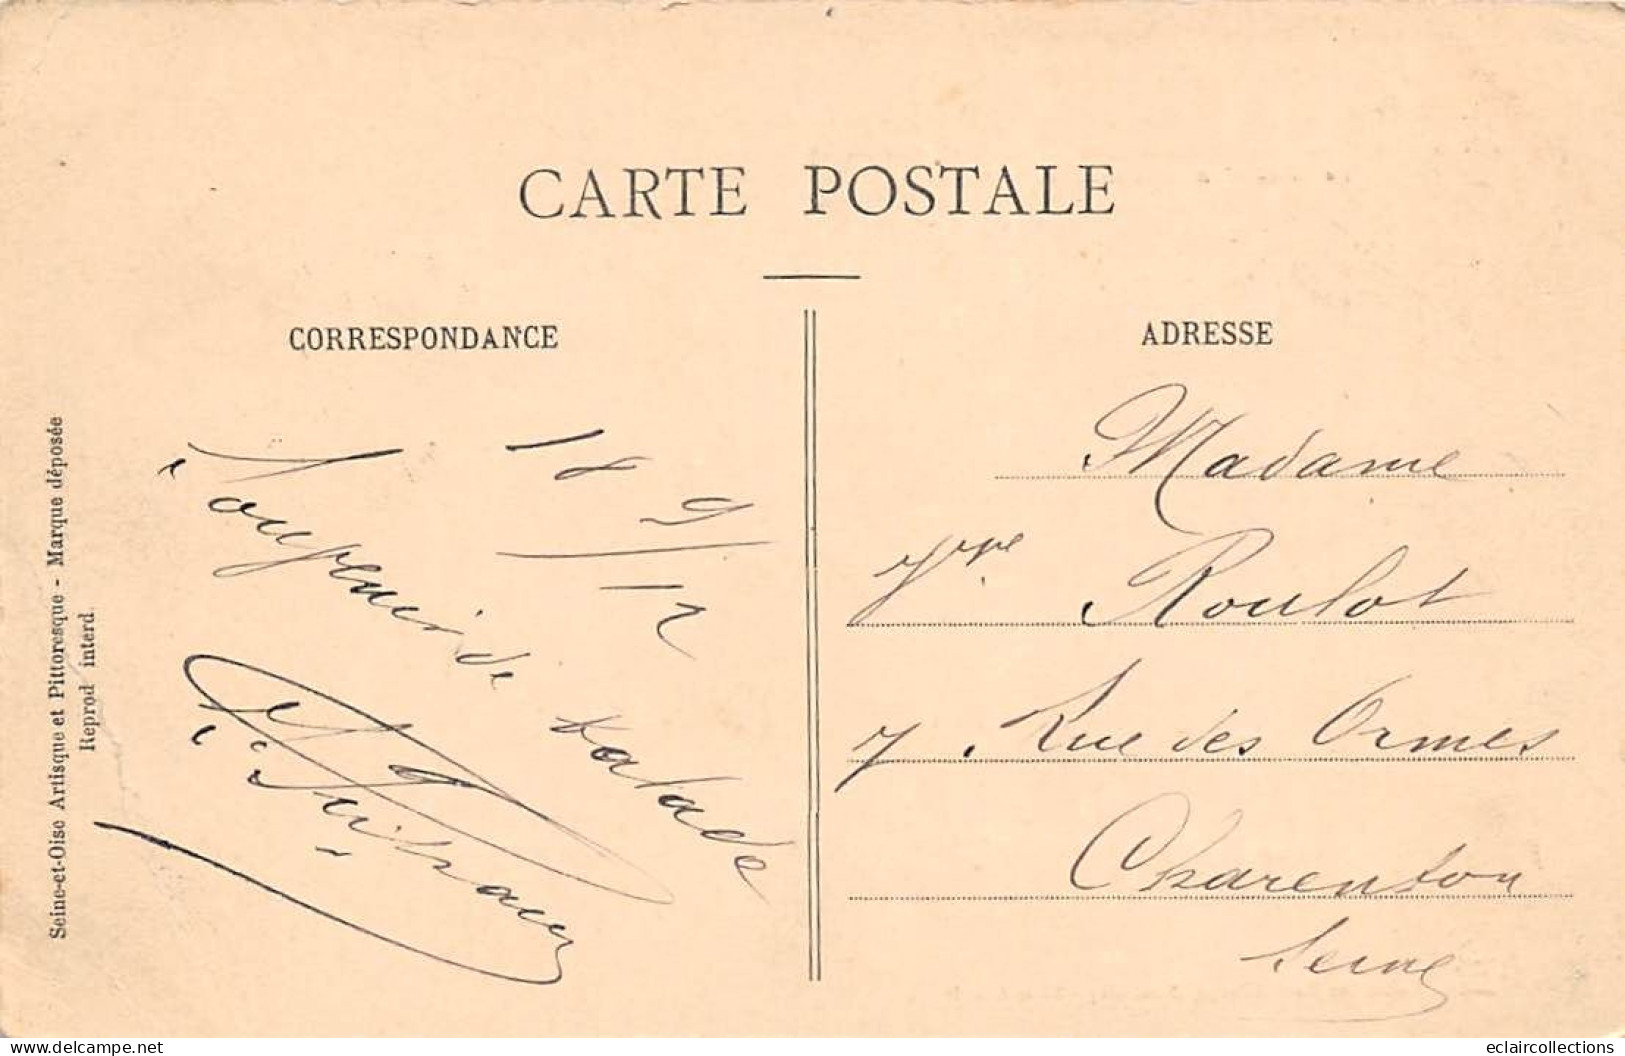 CARTE POSTALE
CORRESPONDANCE
18
9/12
Souvenir de
balade
ADRESSE
Madame
Roulot
7, Rue des Ormes
Charenton
Seine
Seine-et-Oise Artisque et Pittoresque - Marque déposée
Reprod interd.
delcampe.net
eclaircollections